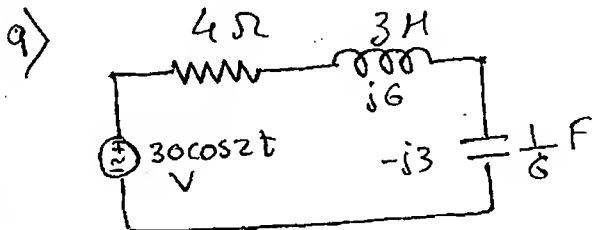 9)
4Ω
3H
j6
30cos2t
V
-j3
1/6 F